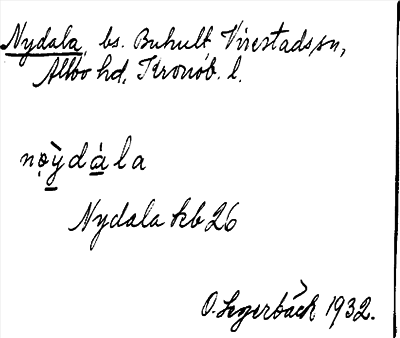 Nydala, bs. Buhult Virestads sn,
Allbo hd, Kronob. l.
nọỳ̱dá̱la
Nydala kb 26
O. Legerbäck 1932.